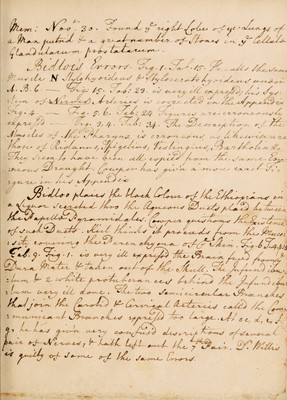 Mem: Novr 30. Found ye right Lobe of ye Lungs of
a Man putrid & a great number of Stones in ye Cellula
Glandularum prostatarum.
Bidloo's Errors Fig. 1. Tab. 15. He calls the same
Muscle N Stylohyoideus & Styloceratohyoideus under
A. B. 6 — Fig. 15. Tab. 23. is very ill expressed his Sys
tem of Nerves. Arteries is corrected in the Appendix
Fig. 4. Fig. 5. 6. Tab. 24 Figures erroneously
expressed 3. 4. Tab. 31. The Description of the
Muscles of the Pharynx is erroneous, as likewise are
those of Riolanus, Spigelius, Veslingius, Bartholin &c
They seem to have been all copied from the same Erro
neous Draught. Cowper has given a more exact Fi
gure in his Appendix.
Bidloo places the black Colour of the Ethiopians in
a Liquor secreted thro the Aqueous Ducts, placed between
the Papillæ Pyramidales. Cowper questions the Existence
of such Ducts. Keil thinks it proceeds from the Mucos
ity covering the Parenchyma of ye Skin.
Tab. 9. Fig. 1. is very ill expressed the Brain freed from ye
Dura Mater & taken out of the Skull. The Infundibu
lum & 2 white protuberances behind the Infundibu
lum very ill done. The two Semicircular Branches
that join the Carotid & Cervical Arteries called the Com
municant Branches expressed too large.
9. he has given very confused descriptions of some
pair of Nerves, & hath left out the 7th Pair. Dr. Willis
is guilty of some of the same Errors.